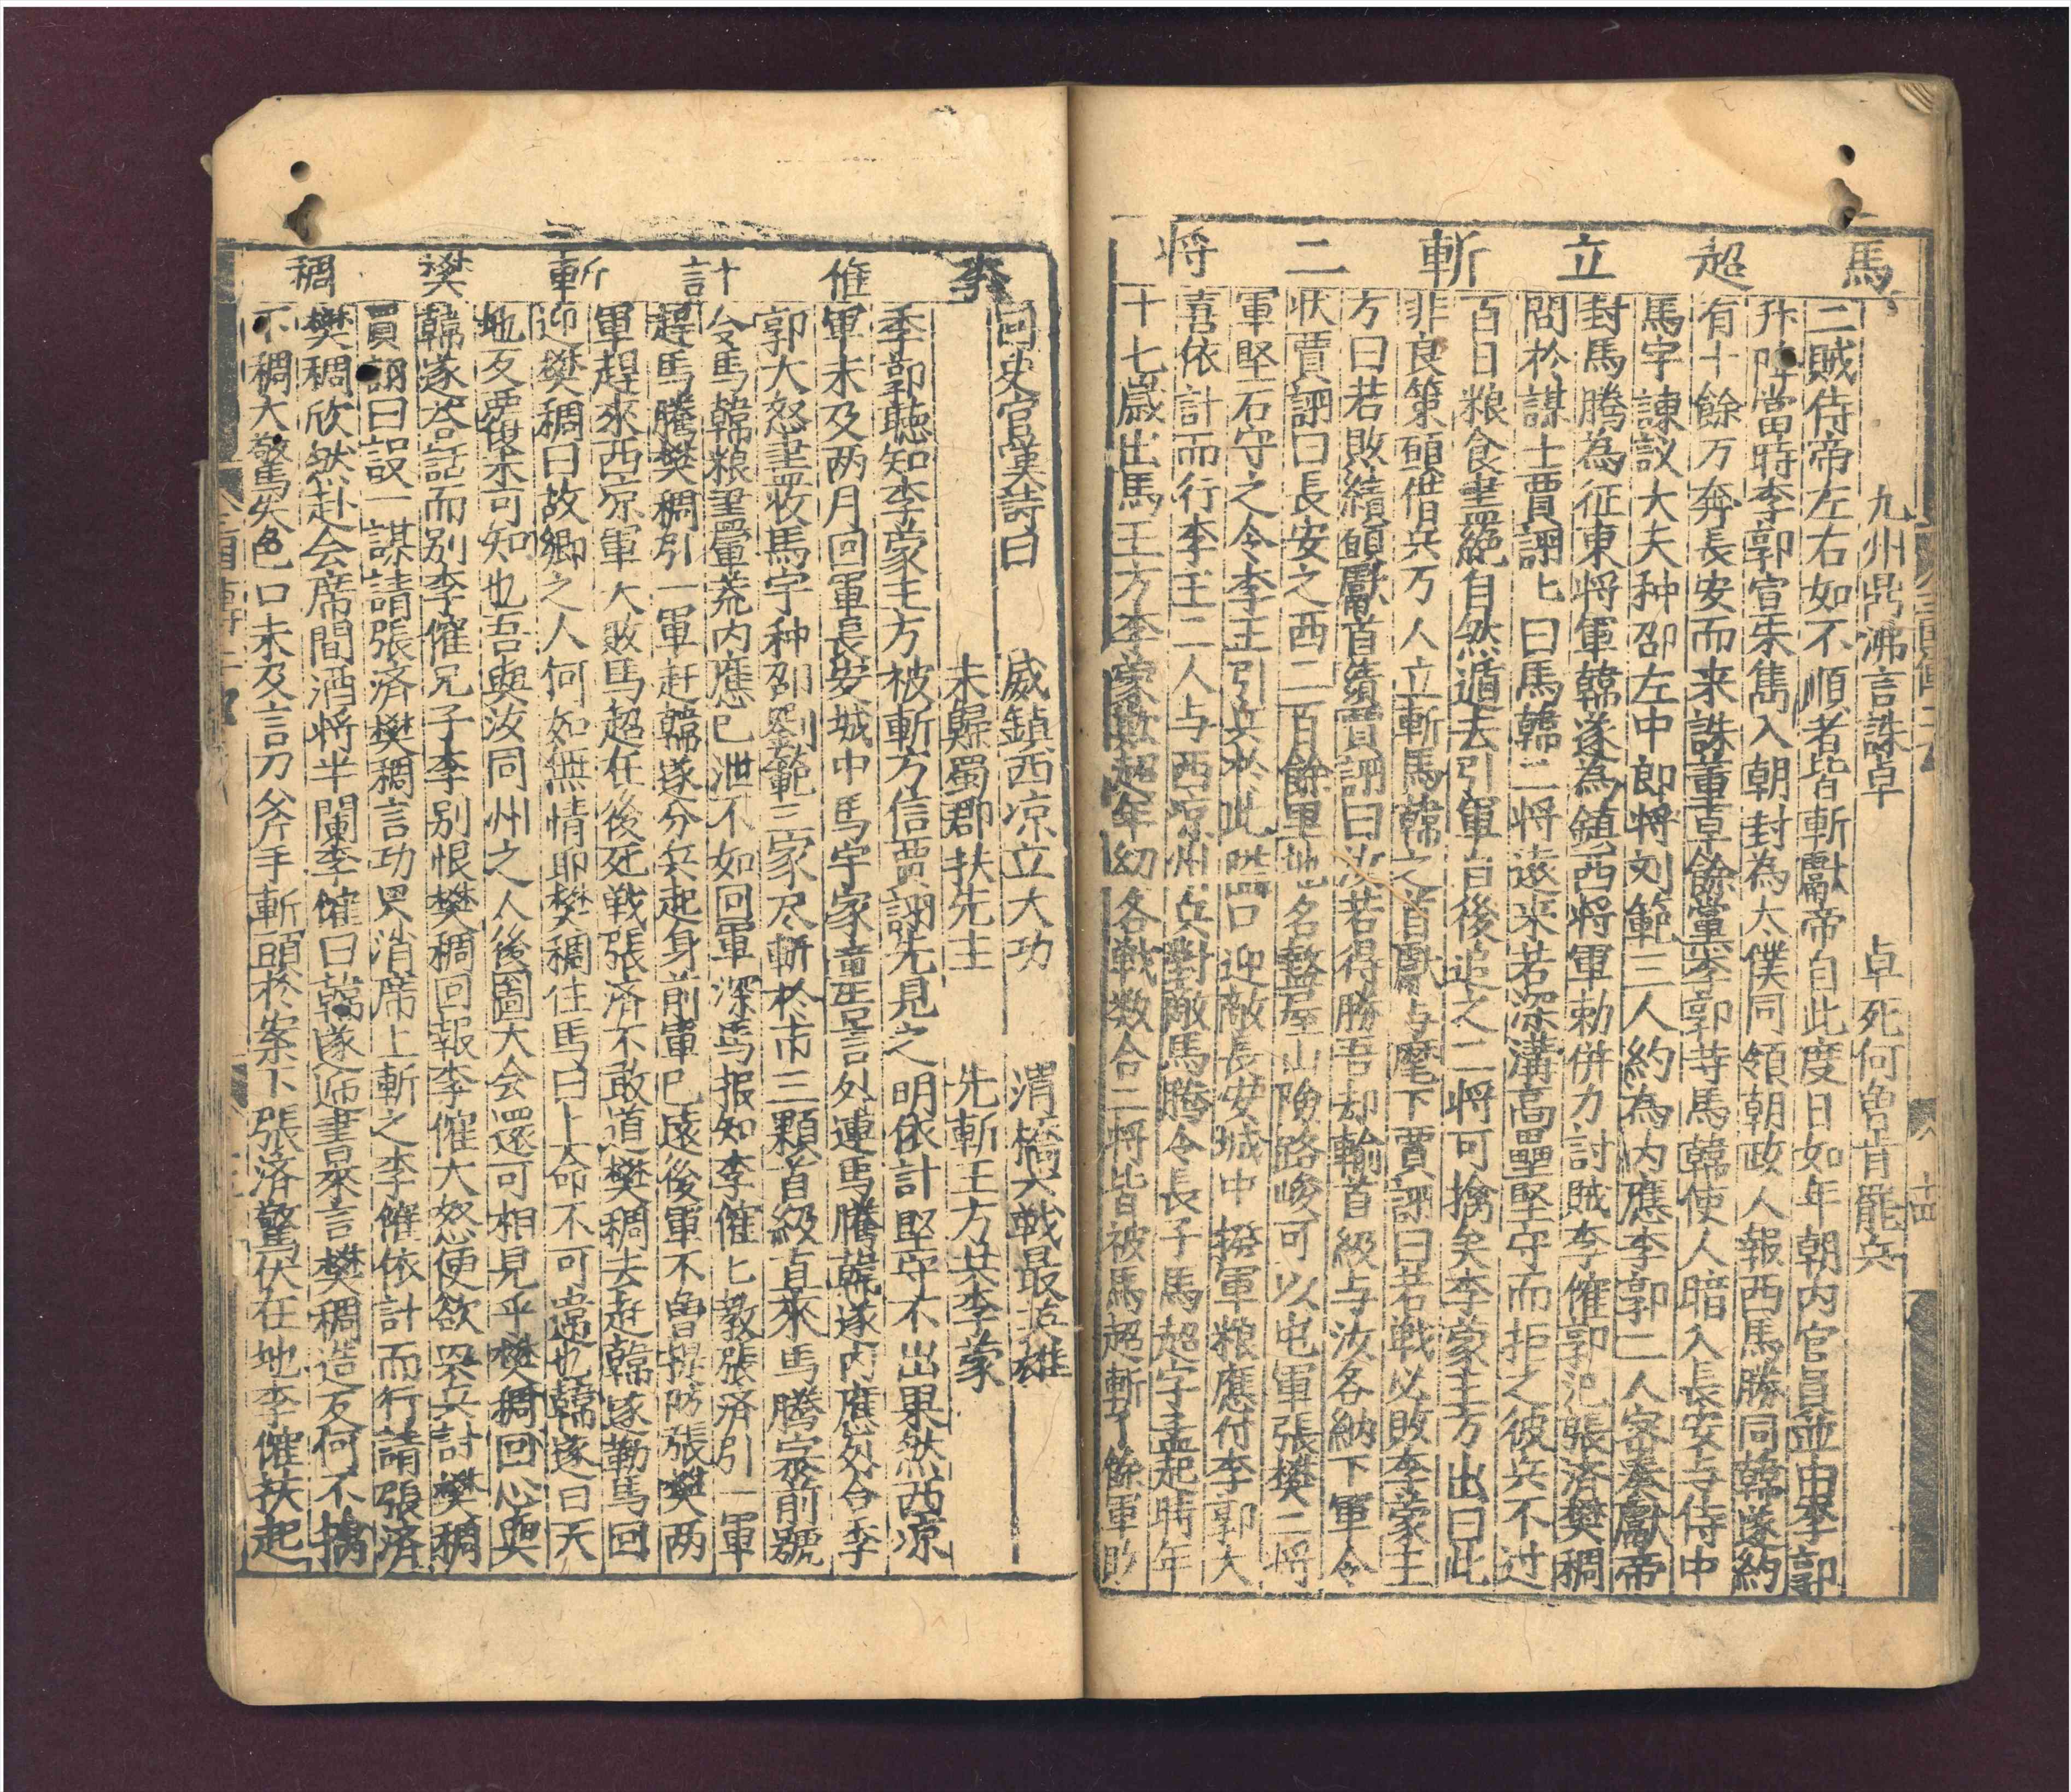 馬超立斬二將
九州鼎沸言誅卓　卓死何曾肯罷兵
二賊侍帝左右如不順者皆斬獻帝自此度日如年朝内官員並由李郭
升降當時李郭宣朱儁入朝封為太僕同領朝政人報西馬騰同韓遂約
有十餘万奔長安而来誅董卓餘黨李郭等馬韓使人暗入長安与侍中
馬宇諫議大夫种邵左中郎將刘範三人約為内應李郭二人密奏獻帝
封馬騰為征東将軍韓遂為鎮西将軍勅併力討賊李傕郭汜張済樊稠
問於謀士賈詡匕曰馬韓二将遠来若深溝高壘堅守而拒之彼兵不过
百日粮食盡絕自然遁去引軍自後追之二将可擒矣李蒙王方出曰此
非良策願借兵万人立斬馬韓之首獻与麾下賈詡曰若戦必敗李蒙王
方曰若敗績願獻首級賈詡曰汝若得勝吾却輸首級与汝各納下軍令
状賈詡曰長安之西二百餘里地名盩厔山險路峻可以屯軍張樊二将
軍堅石守之令李王引兵於此隘口迎敵長安城中撥軍粮應付李郭大
喜依計而行李王二人与西凉州兵對敵馬騰令長子馬超字孟起時年
十七歲出馬王方李蒙欺超年幼各戦数合二将皆被馬超斬了餘軍敗
李傕計斬樊稠
回史官葉詩曰　威鎮西凉立大功　渭橋大戦最英雄
未歸蜀郡扶先主　先斬王方共李蒙
李郭聽知李蒙王方被斬方信賈詡先見之明依計堅守不出果然西凉
軍未及两月回軍長安城中馬宇家童告言外連馬騰韓遂内應外合李
郭大怒盡收馬宇种邵劉範三家尽斬於市三顆首級直來馬騰寨前號
令馬韓粮盡軍荒内應已泄不如回軍深馬报知李傕匕教張済引一軍
趕馬騰樊稠引一軍赶韓遂分兵起身前軍已遠後軍不曾提防張樊两
軍趕來西凉軍大敗馬超在後死戦張済不敢道樊稠去赶韓遂勒馬回
迎樊稠曰故鄉之人何如無情耶樊稠住馬曰上命不可違也韓遂曰天
地反覆未可知也吾與汝同州之人後圖大会還可相見乎樊稠回心與
韓遂答話而别李傕兄子李别恨樊稠回報李傕大怒便欲累兵討樊稠
賈詡曰設一謀請張済樊稠言功畏消席上斬之李傕依計而行請張済
樊稠欣然赴会席間酒将半闌李傕曰韓遂遞書來言樊稠造反何不擒
不稠大驚失色口未及言刀斧手斬頭於案下張済驚伏在地李傕扶起